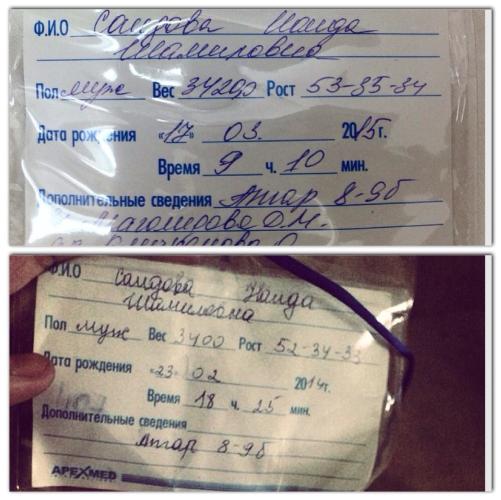 Ф.И.О Саидова Наида
Шамиловна
Пол муж Вес 3420г Рост 53-35-34
Дата рождения «17» 03. 2015г.
Время 9 ч. 10 мин.
Дополнительные сведения Апгар 8-9б
Магомедова О.М.
Ф.И.О Саидова Наида
Шамиловна
Пол муж Вес 3400 Рост 52-34-33
Дата рождения «23» 02 2014г.
Время 18 ч. 25 мин.
Дополнительные сведения
Апгар 8-9б
APEXMED